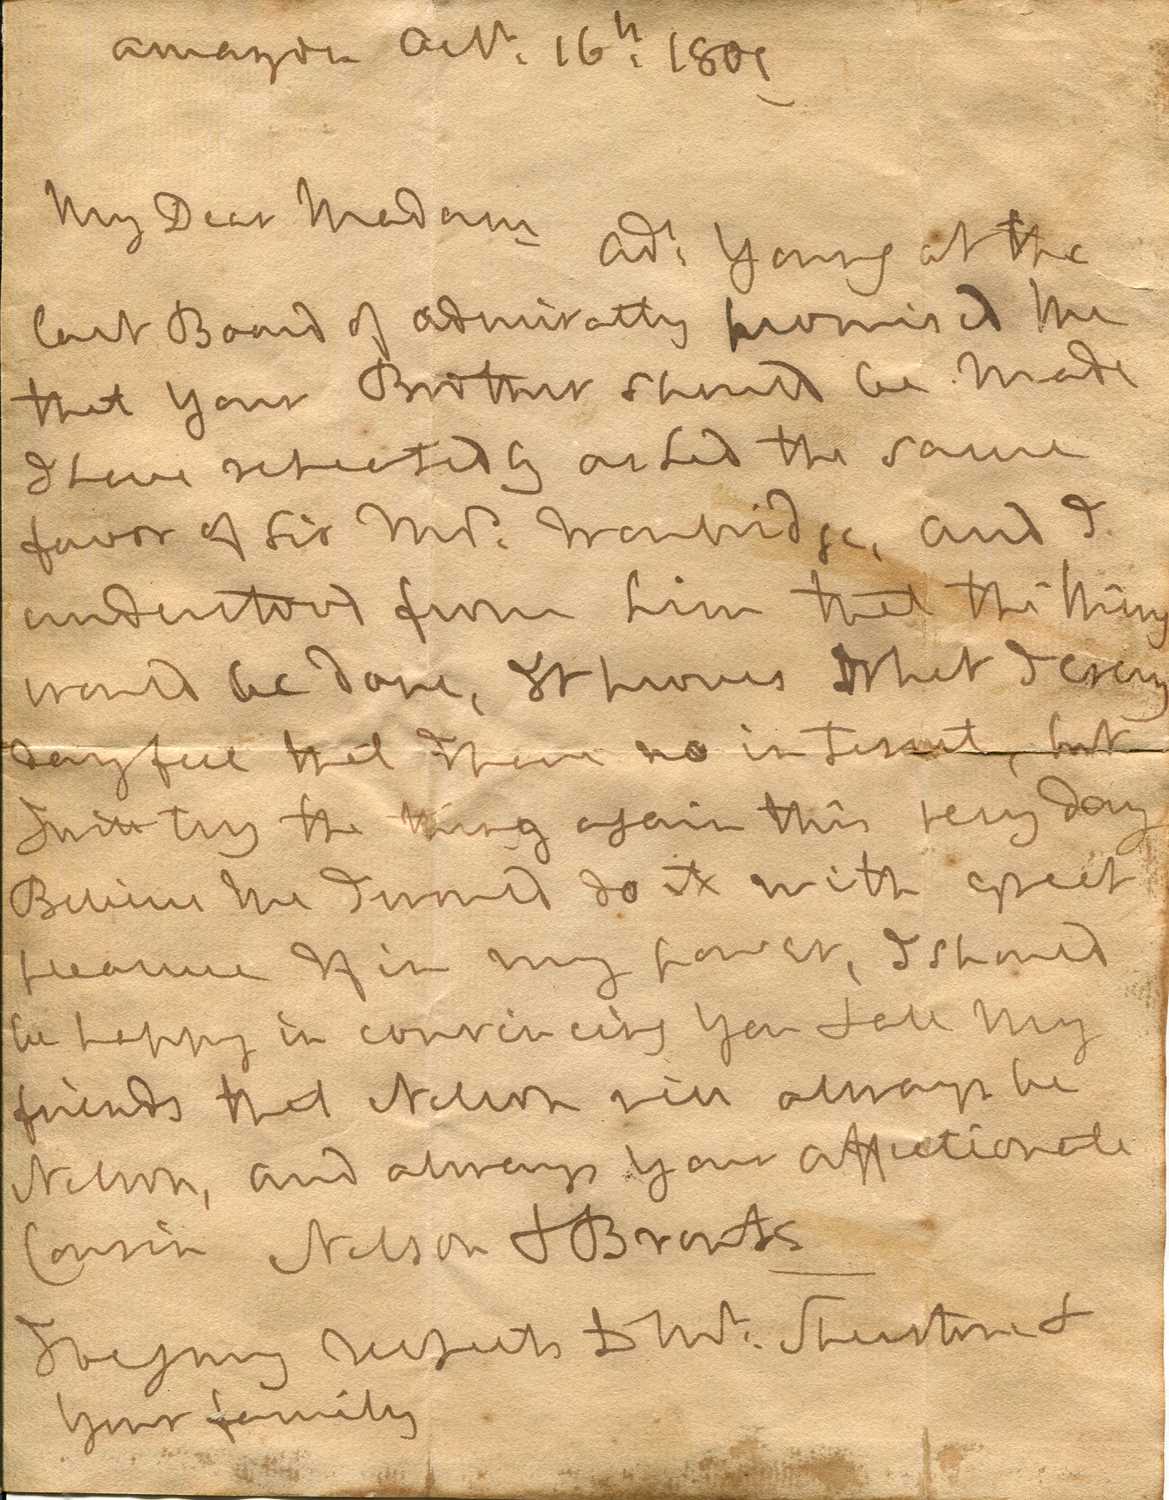 Amazon Octr. 16th: 1801
My Dear Madam Adl: Young at the
last Board of Admiralty promised me
that Your Brother should be Made
I have repeatedly asked the same
favor of Sir Ts. Troubridge, and I
understood from him that the thing
would be done, It proves What I every
day feel that I have no interest, but
I will try the thing again this very day
Believe me I would do it with great
pleasure If in my power, I should
be happy in convincing You & all My
friends that Nelson will always be
Nelson, and always Your Affectionate
Cousin Nelson & Bronte
I beg my respects to Mr. &
Your family